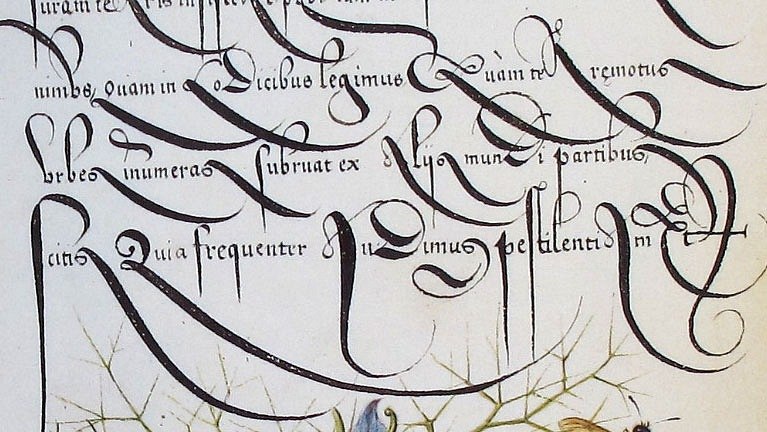 nimbs, Quam in Codicibus legimus Quàm te remotus
vrbes inumeras subruat ex alijs mundi partibus,
scitis Quia frequenter audimus pestilentiam Et